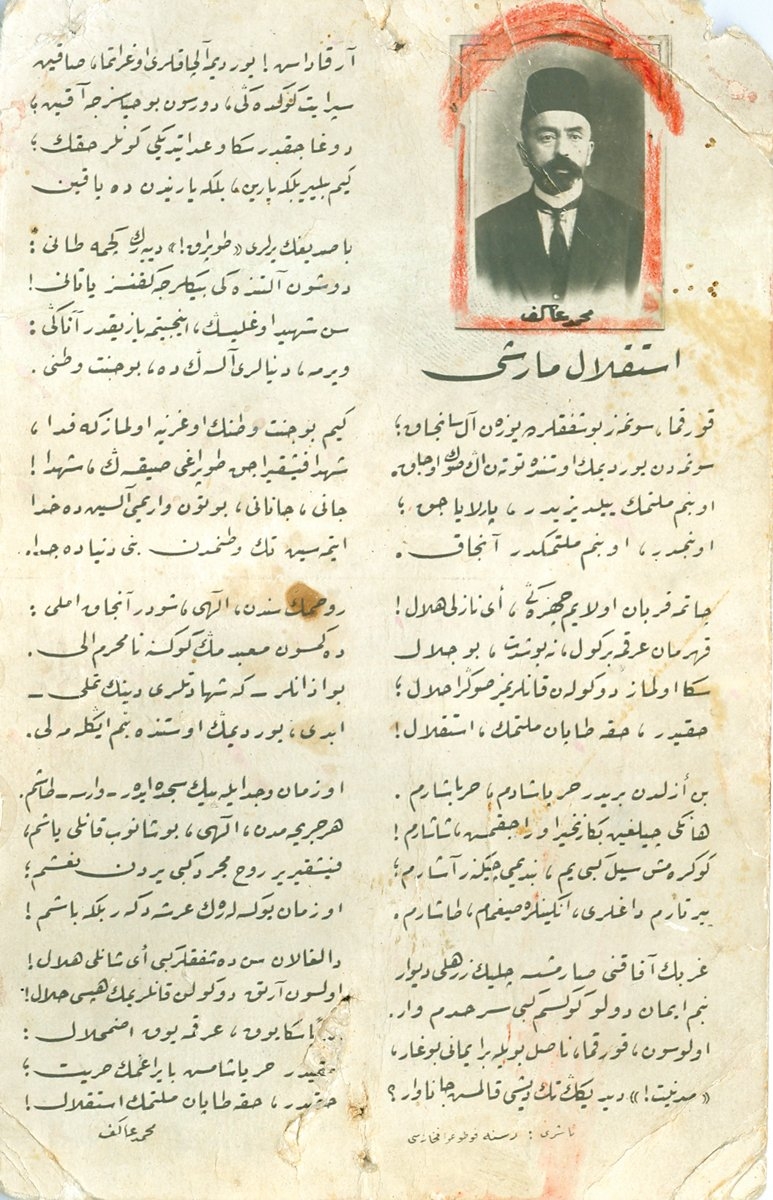 محمد عاكف
استقلال مارشى
قورقما، سونمز بو شفقلرده يوزن آل سانجاق؛
سونمه‌دن يورديمك اوستنده توتن اڭ صوڭ اوجاق.
او بنم ملتمك ييلديزيدر، پارلاياجق؛
او بنمدر، او بنم ملتمكدر آنجاق.
چاتمه قربان اولايم چهره‌ڭى، أى نازلى هلال!
قهرمان عرقمه بر كول، نه بو شدت، بو جلال
سكا اولماز دوكولن قانلريمز صوڭرا حلال؛
حقيدر، حقه طاپان ملتمك، استقلال!
بن أزلدن بريدر حر ياشادم، حر ياشارم.
هانكى چيلغين بكا زنجير اوراجقمش، شاشارم!
كوكره‌مش سيل كبى‌يم، بنديمى چيكنر آشارم؛
ييرتارم داغلرى، انكينلره صيغمام، طاشارم.
غربك آفاقنى صارمشسه چليك زرهلى ديوار
بنم ايمان دولو كوكسم كبى سرحدم وار.
اولوسون، قورقما، ناصل بويله بر ايمانى بوغار،
«مدنيت!» ديديكك تك ديشى قالمش جاناوار؟
آرقاداش! يورديمه آلچاقلرى اوغراتما، صاقين
سپر ايت كوكده‌كى، دورسون بو حياسزجه آقين؛
دوغاجقدر سكا وعد ايتديكى كونلر حقك؛
كيم بيلير بلكه يارين، بلكه ياريندن ده ياقين
باصديغك يرلرى «طوپراق!» ديه‌رك كچمه طانى:
دوشون آلتنده‌كى بيكلرجه كفنسز ياتانى!
سن شهيد اوغليسك، اينجيتمه يازيقدر آتاكى:
ويرمه، دنيالرى آلسه‌ڭ ده، بو جنت وطنى.
كيم بو جنت وطنك اوغرينه اولماز كه فدا،
شهدا فيشقيراجق طوپراغى صيقسه‌ڭ، شهدا!
جانى، جانانى، بوتون واريمى آلسين ده خدا
ايتمه‌سين تك وطنمدن بنى دنياده جدا.
روحمك سندن، الهى، شودر آنجاق املى:
دكمسون معبدمك كوكسنه نامحرم الى.
بو اذانلر ـ كه شهادتلرى دينك تملى ـ
ابدى، يورديمك اوستنده بنم ايكله‌ملى.
او زمان وجد ايله بيك سجده ايدر ـ وارسه ـ طاشم.
هر جريحه‌مدن، الهى، بوشانوب قانلى ياشم،
فيشقيرير روح مجرد كبى يردن نعشم؛
او زمان يوكسله‌رك عرشه دكر بلكه باشم!
دالغالان سن ده شفقلر كبى أى شانلى هلال!
اولسون آرتق دوكولن قانلريمك هپسى حلال!
سكا يوق، عرقمه يوق اضمحلال:
حقيدر حر ياشامش بايراغمك حريت؛
حقيدر، حقه طاپان ملتمك استقلال!
محمد عاكف
ناشرى: